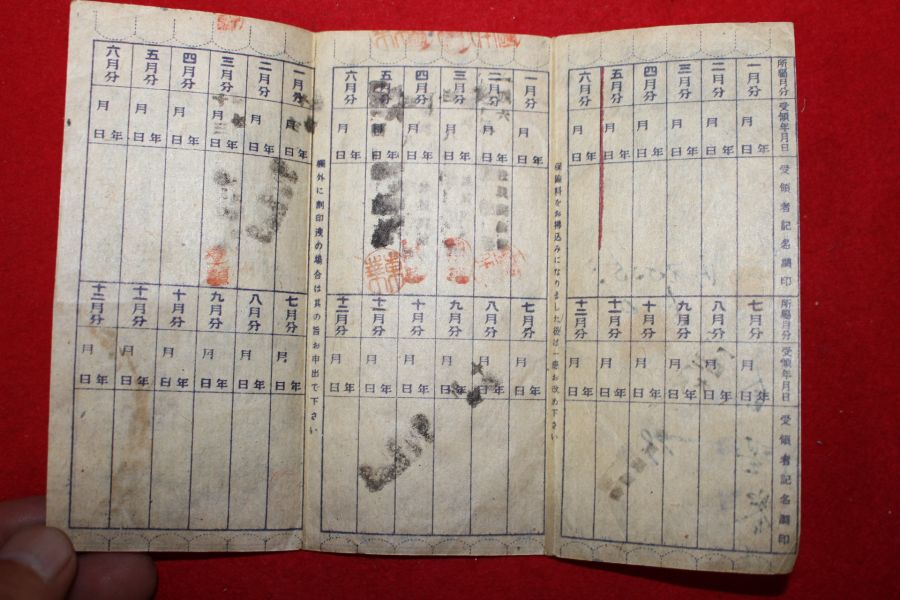 所屬月分
受領年月日
受領者記名調印
一月分
二月分
三月分
四月分
五月分
六月分
年 月 日
年 月 日
年 月 日
年 月 日
年 月 日
年 月 日
所屬月分
受領年月日
受領者記名調印
七月分
八月分
九月分
十月分
十一月分
十二月分
年 月 日
年 月 日
年 月 日
年 月 日
年 月 日
年 月 日
保險料をお拂込みになりました後は一應お改め下さい
一月分
二月分
三月分
四月分
五月分
六月分
年 月 日
年 月 日
年 月 日
年 月 日
年 月 日
年 月 日
七月分
八月分
九月分
十月分
十一月分
十二月分
年 月 日
年 月 日
年 月 日
年 月 日
年 月 日
年 月 日
欄外に割印洩の場合は其の旨お申出で下さい
一月分
二月分
三月分
四月分
五月分
六月分
年 月 日
年 月 日
年 月 日
年 月 日
年 月 日
年 月 日
七月分
八月分
九月分
十月分
十一月分
十二月分
年 月 日
年 月 日
年 月 日
年 月 日
年 月 日
年 月 日